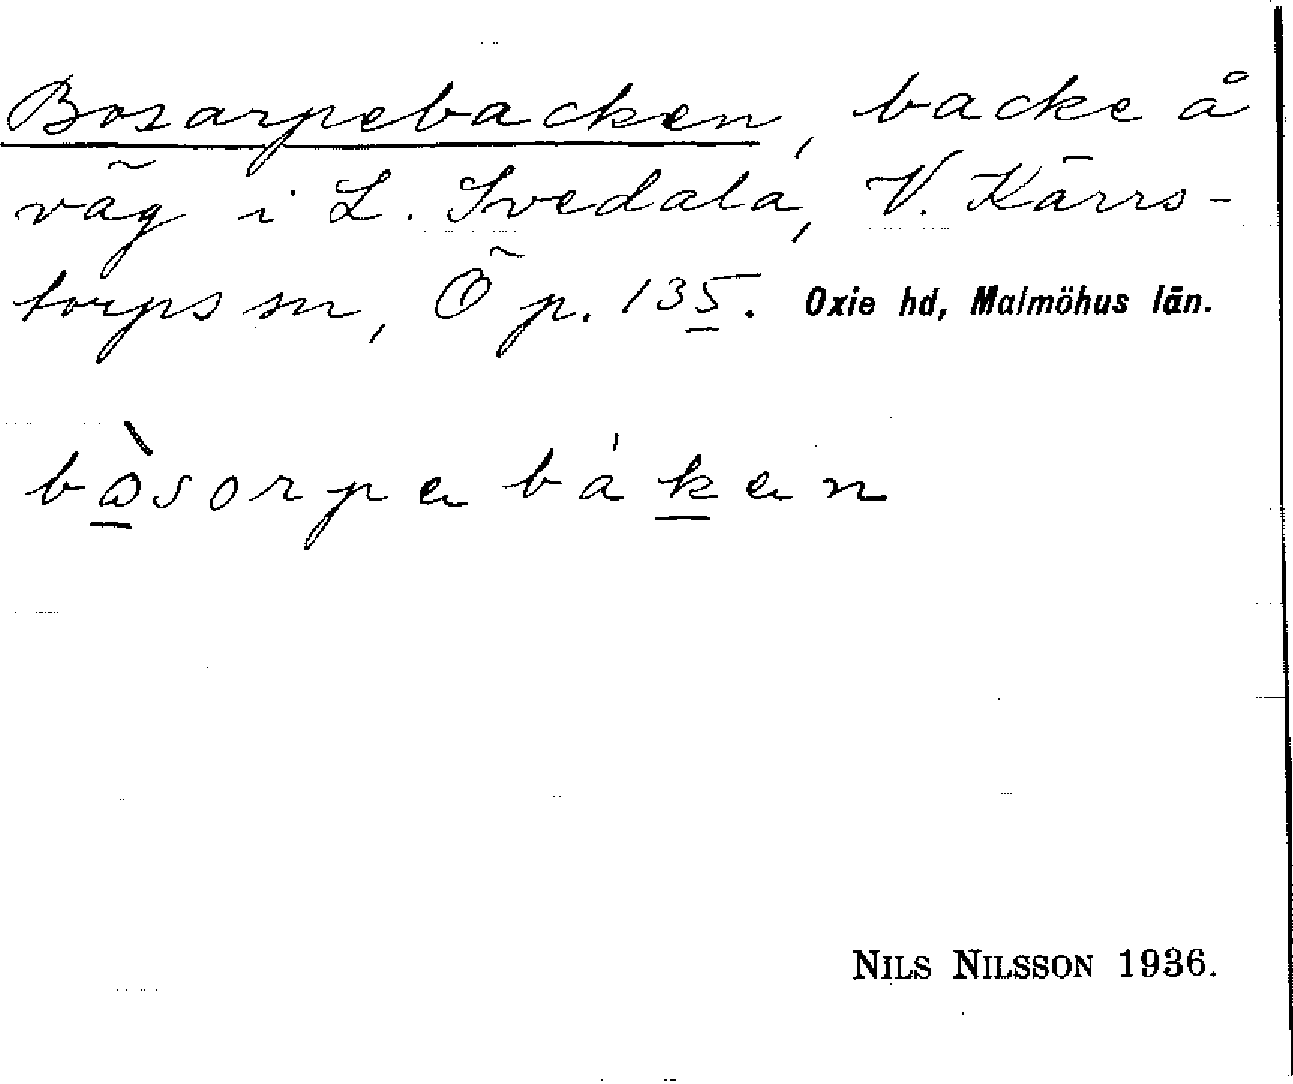 Bosarpebacken, backe å
väg i L. Svedala, V. Kärrs-
torps sn, Ö p. 135. Oxie hd, Malmöhus län.
bòsorpa bákan
NILS NILSSON 1936.